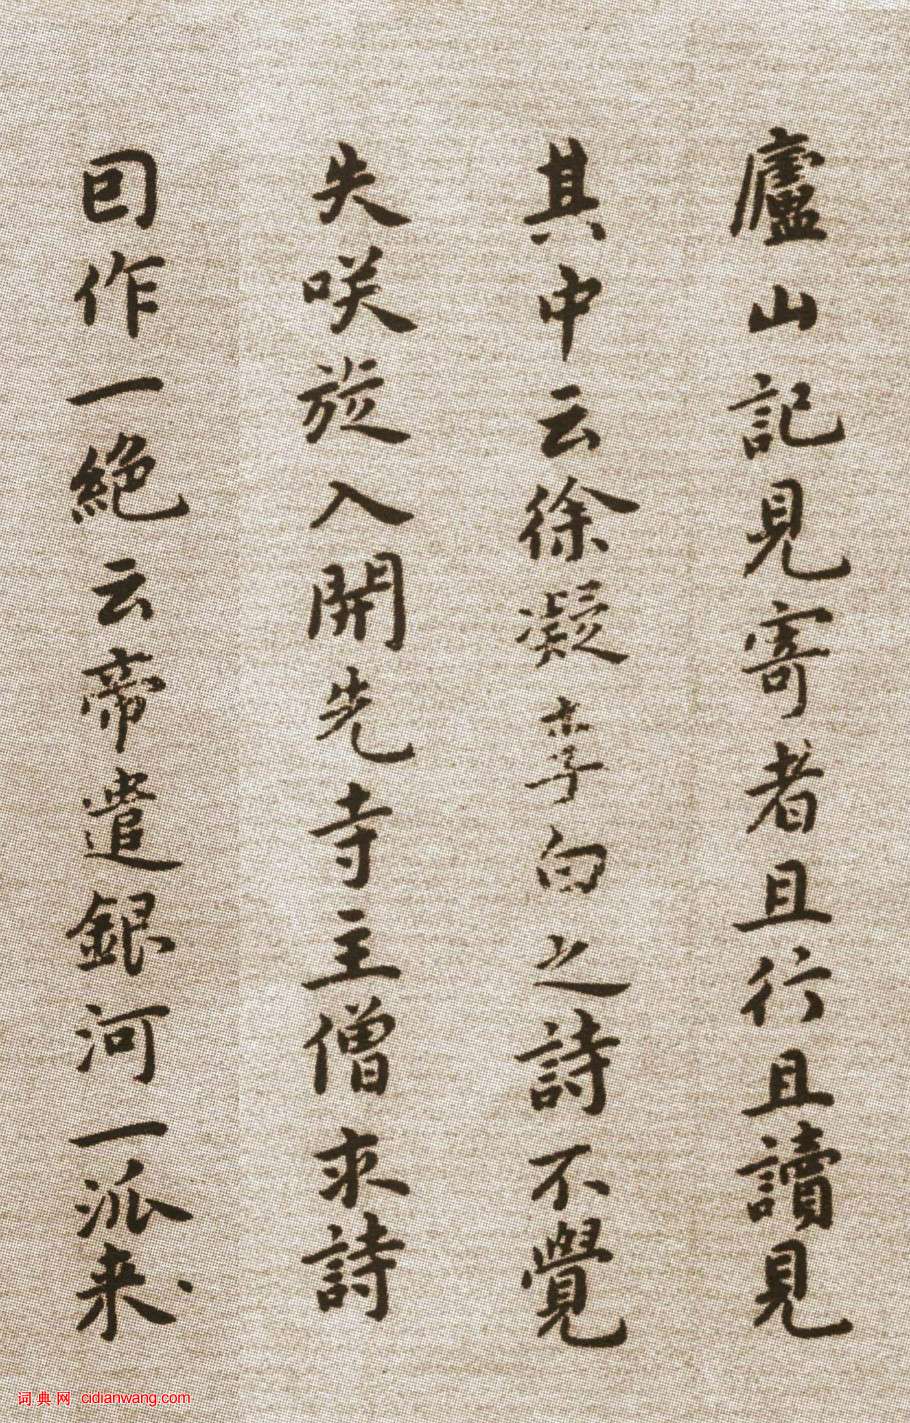 廬山記見寄者且行且讀見
其中云徐凝李白之詩不覺
失咲旋入開先寺主僧求詩
囙作一絕云帝遣銀河一派来
词典网 cidianwang.com